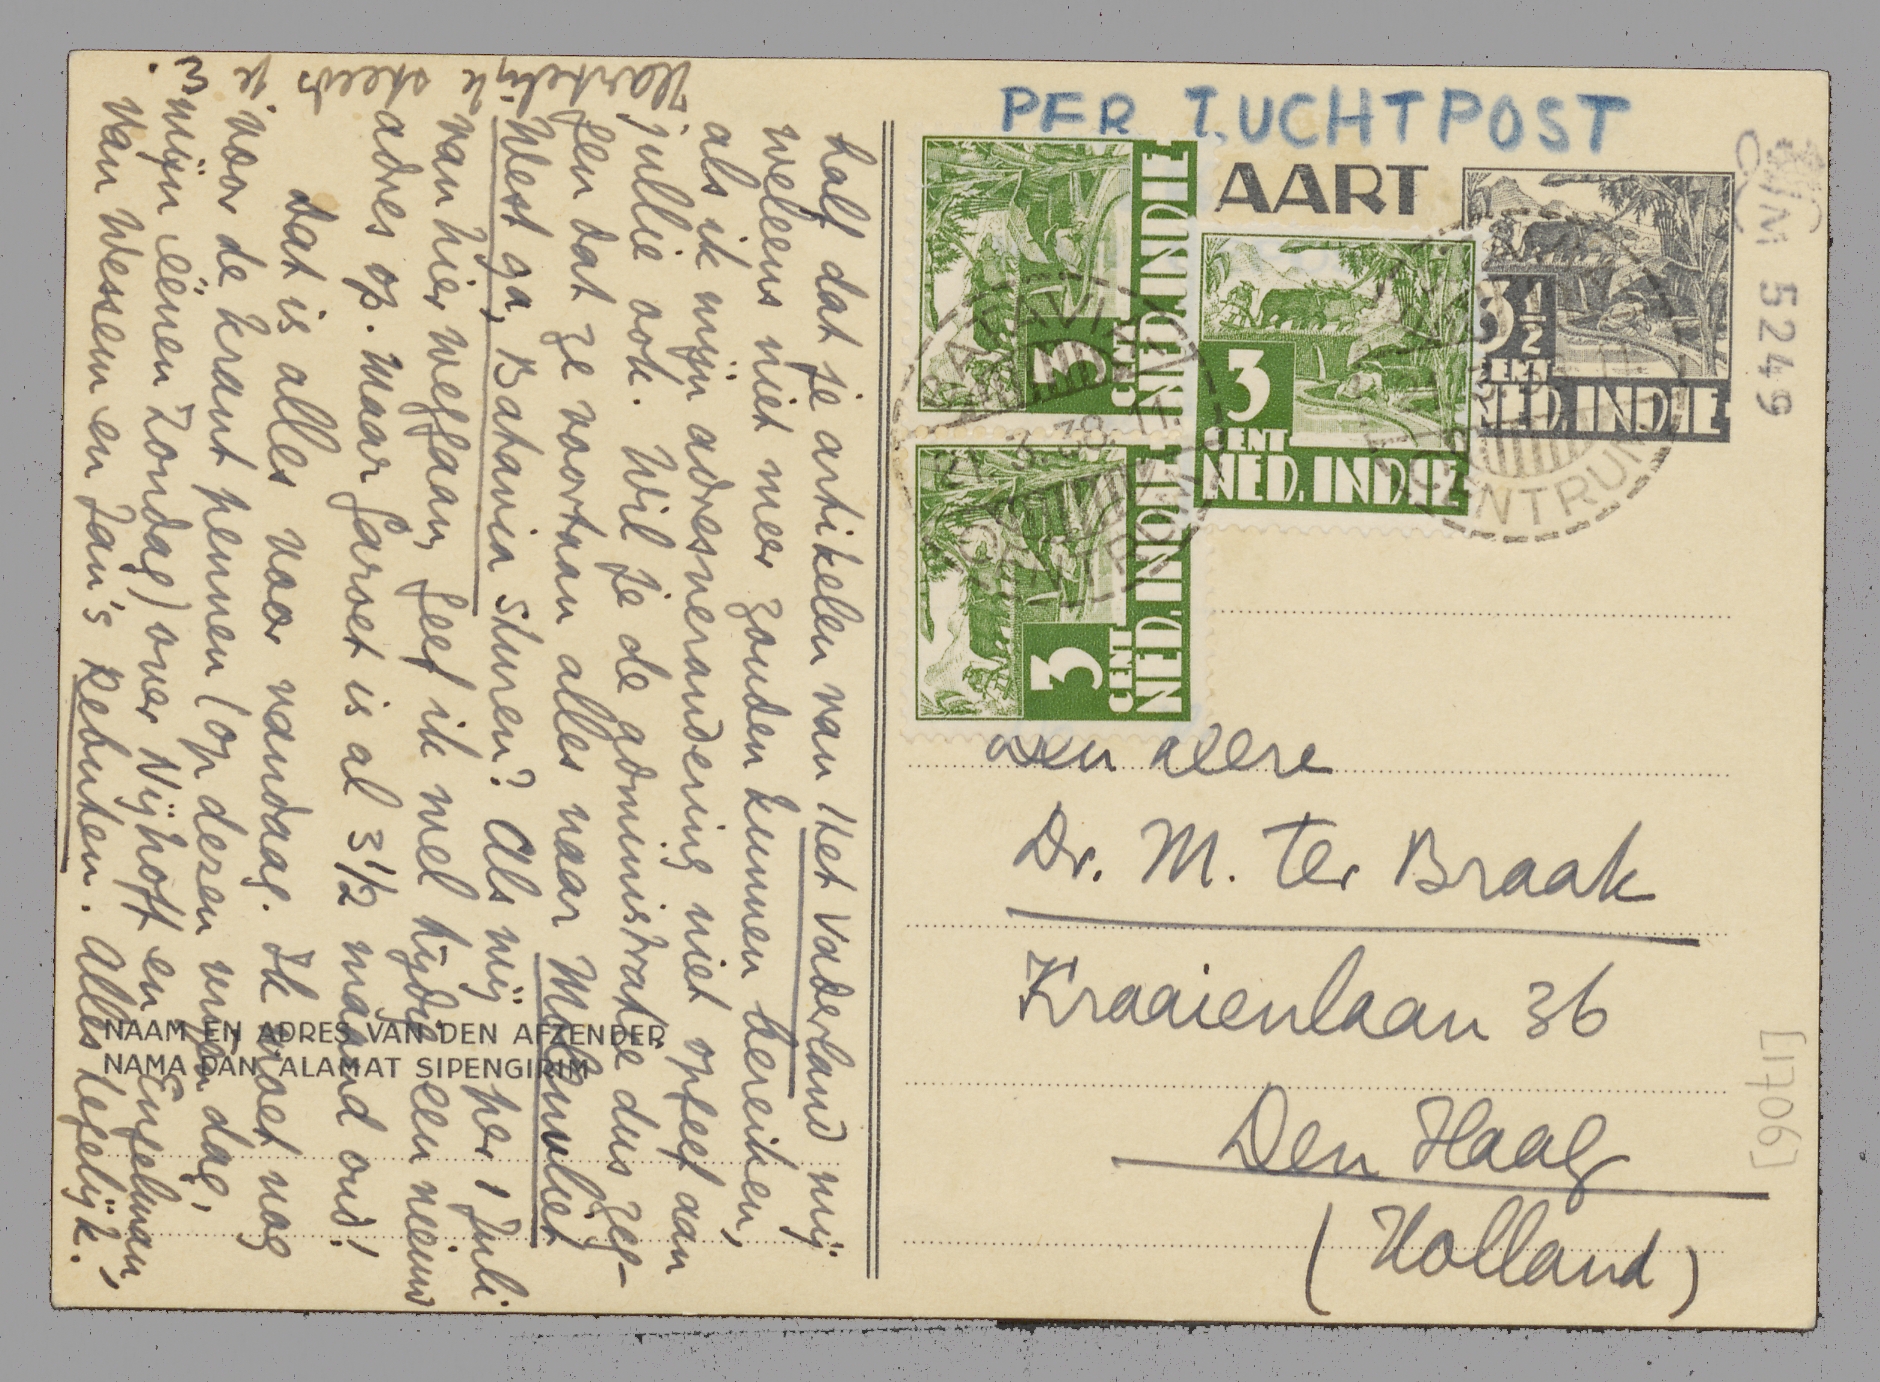 PER LUCHTPOST
AART
NED. INDIE
CENT
3
CENT
NED. INDIE
3
CENT
NED. INDIE
3½
CENT
NED. INDIE
BATAVIA
21.3.38.11
CENTRUM
CENTRUM
M 5249
[1706]
Den Heere
Dr. M. ter Braak
Kraaienlaan 36
Den Haag
(Holland)
half dat je artikelen van Het Vaderland mij
weleens niet meer zouden kunnen bereiken,
als ik mijn adresverandering niet opgeef aan
jullie ook. Wil je de administratie dus zeg-
gen dat ze voortaan alles naar Molenvliet
West 9a, Batavia sturen? Als wij per 1 Juli
van hier weggaan, geef ik wel tijdig een nieuw
adres op. Maar Garoet is al 3½ maand oud!
Dat is alles voor vandaag. Ik moet nog
voor de krant pennen (op dezen vrijen dag,
mijn éénen Zondag) over Nijhoff en Engelman,
van Wessem en Jan's Rebuten. Alles tegelijk.
Hartelijk steeds je
E.
NAAM EN ADRES VAN DEN AFZENDER
NAMA DAN ALAMAT SIPENGIRIM